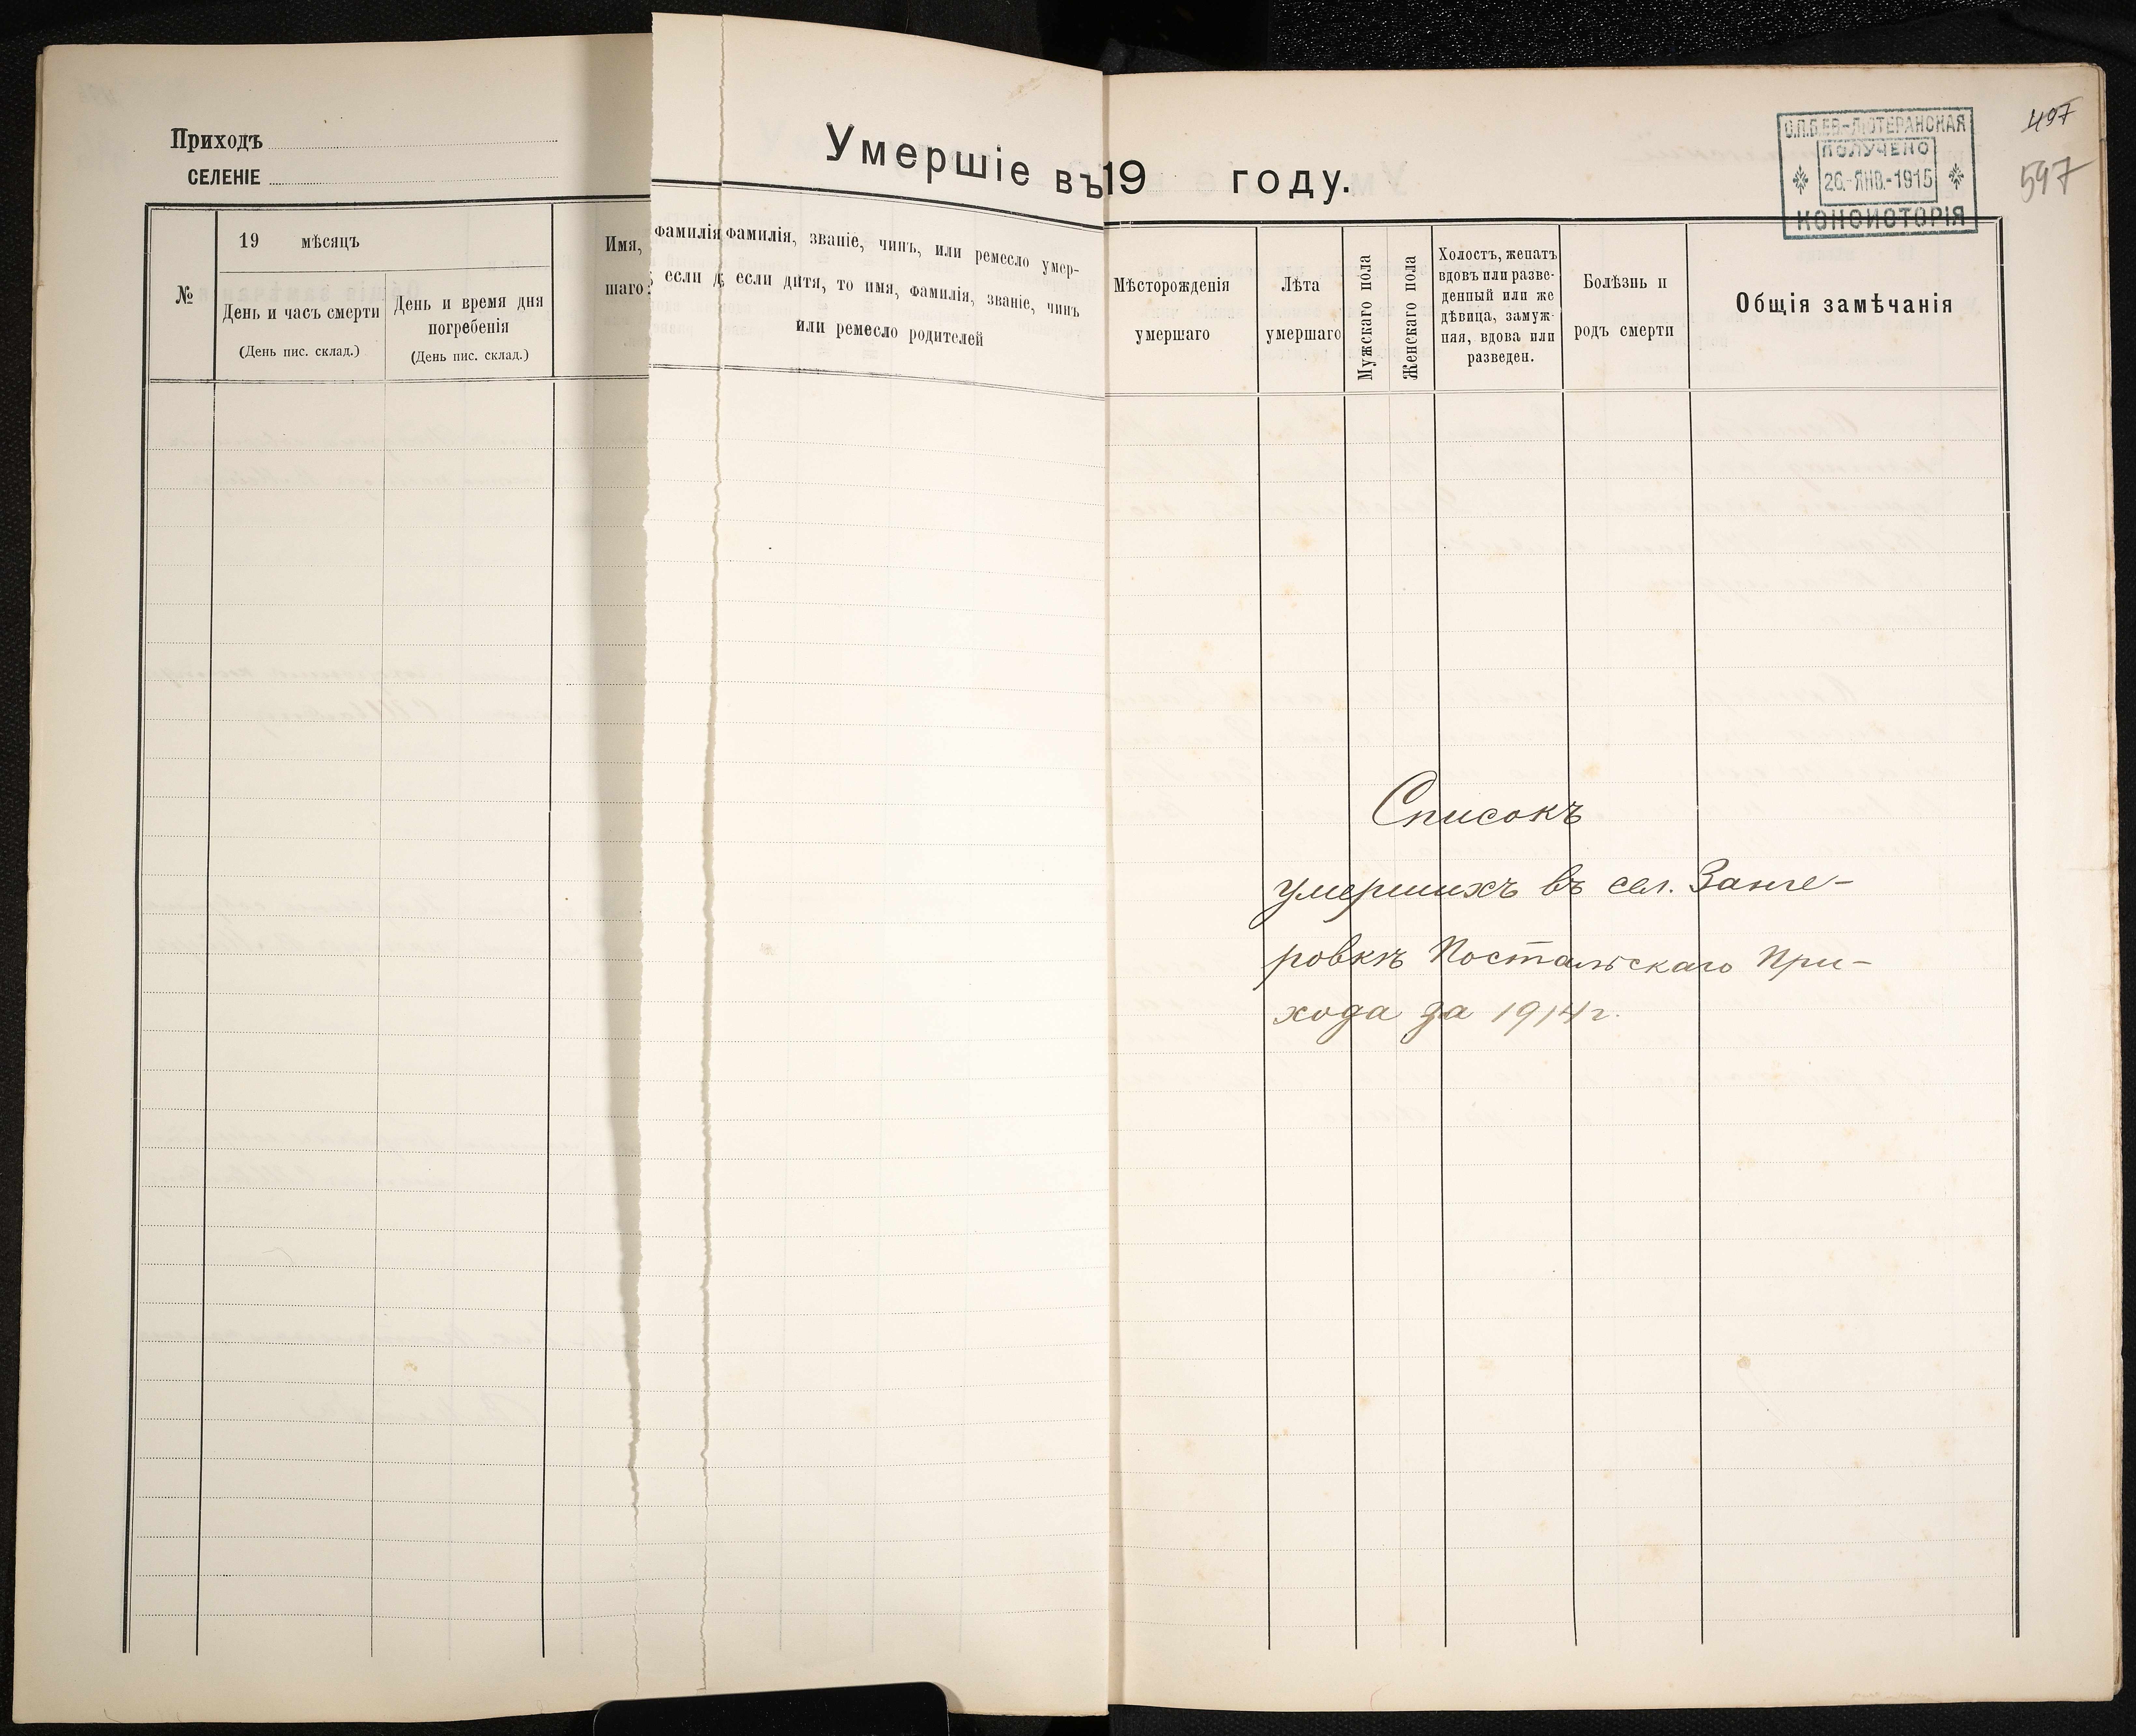 Приходъ
СЕЛЕНІЕ
Умершіе въ 19 году.
С.П.Б. ЕВ.-ЛЮТЕРАНСКАЯ
ПОЛУЧЕНО
26.-ЯНВ.-1915
КОНСИСТОРІЯ
497
597
№
19 мѣсяцъ
День и часъ смерти
(День пис. склад.)
День и время дня
погребенія
(День пис. склад.)
Имя, фамилія фамилія, званіе, чинъ, или ремесло умер-
шаго; если д если дитя, то имя, фамилія, званіе, чинъ
или ремесло родителей
Мѣсторожденія
умершаго
Лѣта
умершаго
Мужскаго пола
Женскаго пола
Холостъ, женатъ
вдовъ или разве-
денный или же
дѣвица, замуж-
няя, вдова или
разведен.
Болѣзнь и
родъ смерти
Общія замѣчанія
Списокъ
умершихъ въ сел. Занге-
ровкѣ Постальскаго При-
хода за 1914 г.